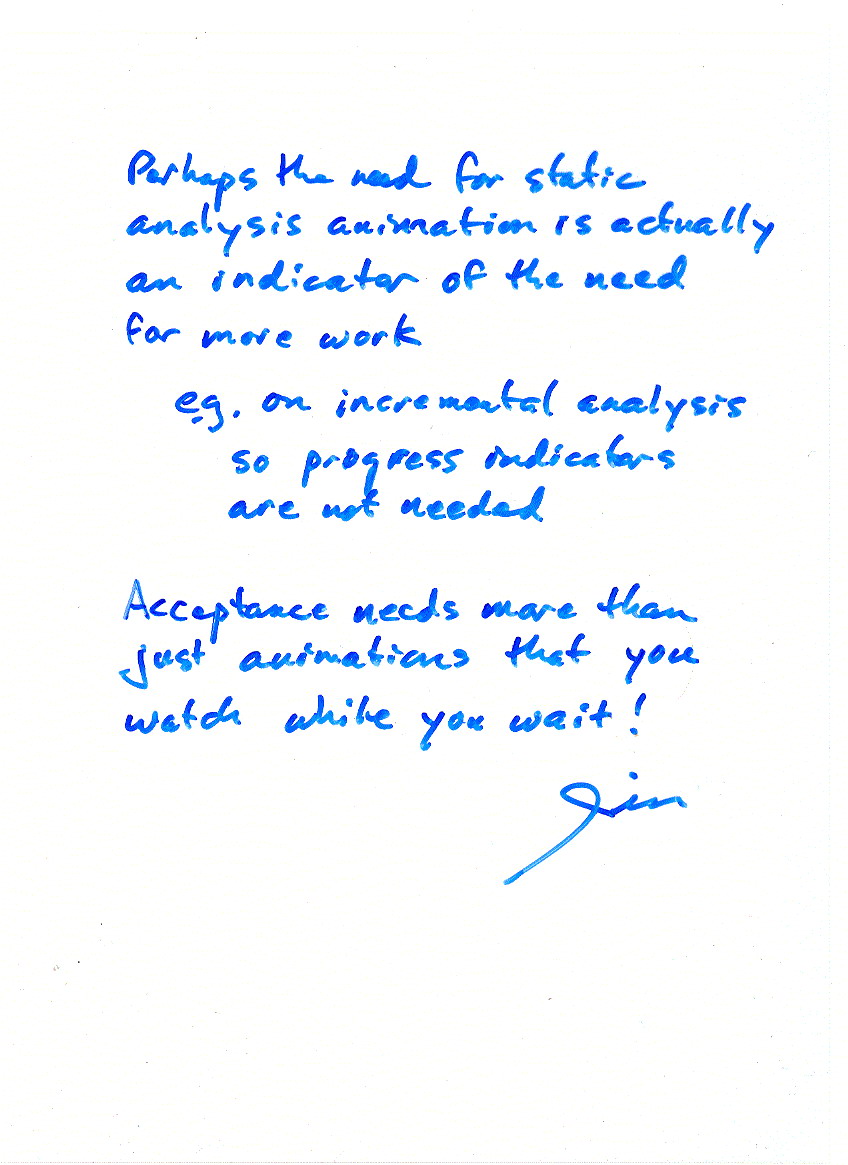 Perhaps the need for static
analysis animation is actually
an indicator of the need
for more work
e.g. on incremental analysis
so progress indicators
are not needed
Acceptance needs more than
just animations that you
watch while you wait!
Jim